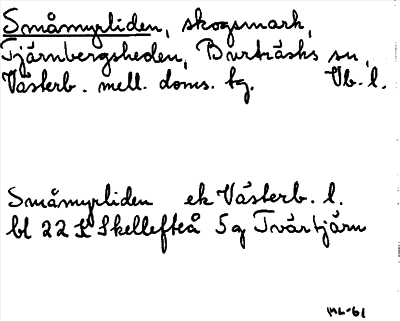 Småmyrliden, skogsmark,
Tjärnbergsheden, Burträsks sn,
Västerb. mell. doms. tg. Vb. l.
Småmyrliden ek Västerb. l.
bl 22 K Skellefteå 5g Tvärtjärn
ML-61